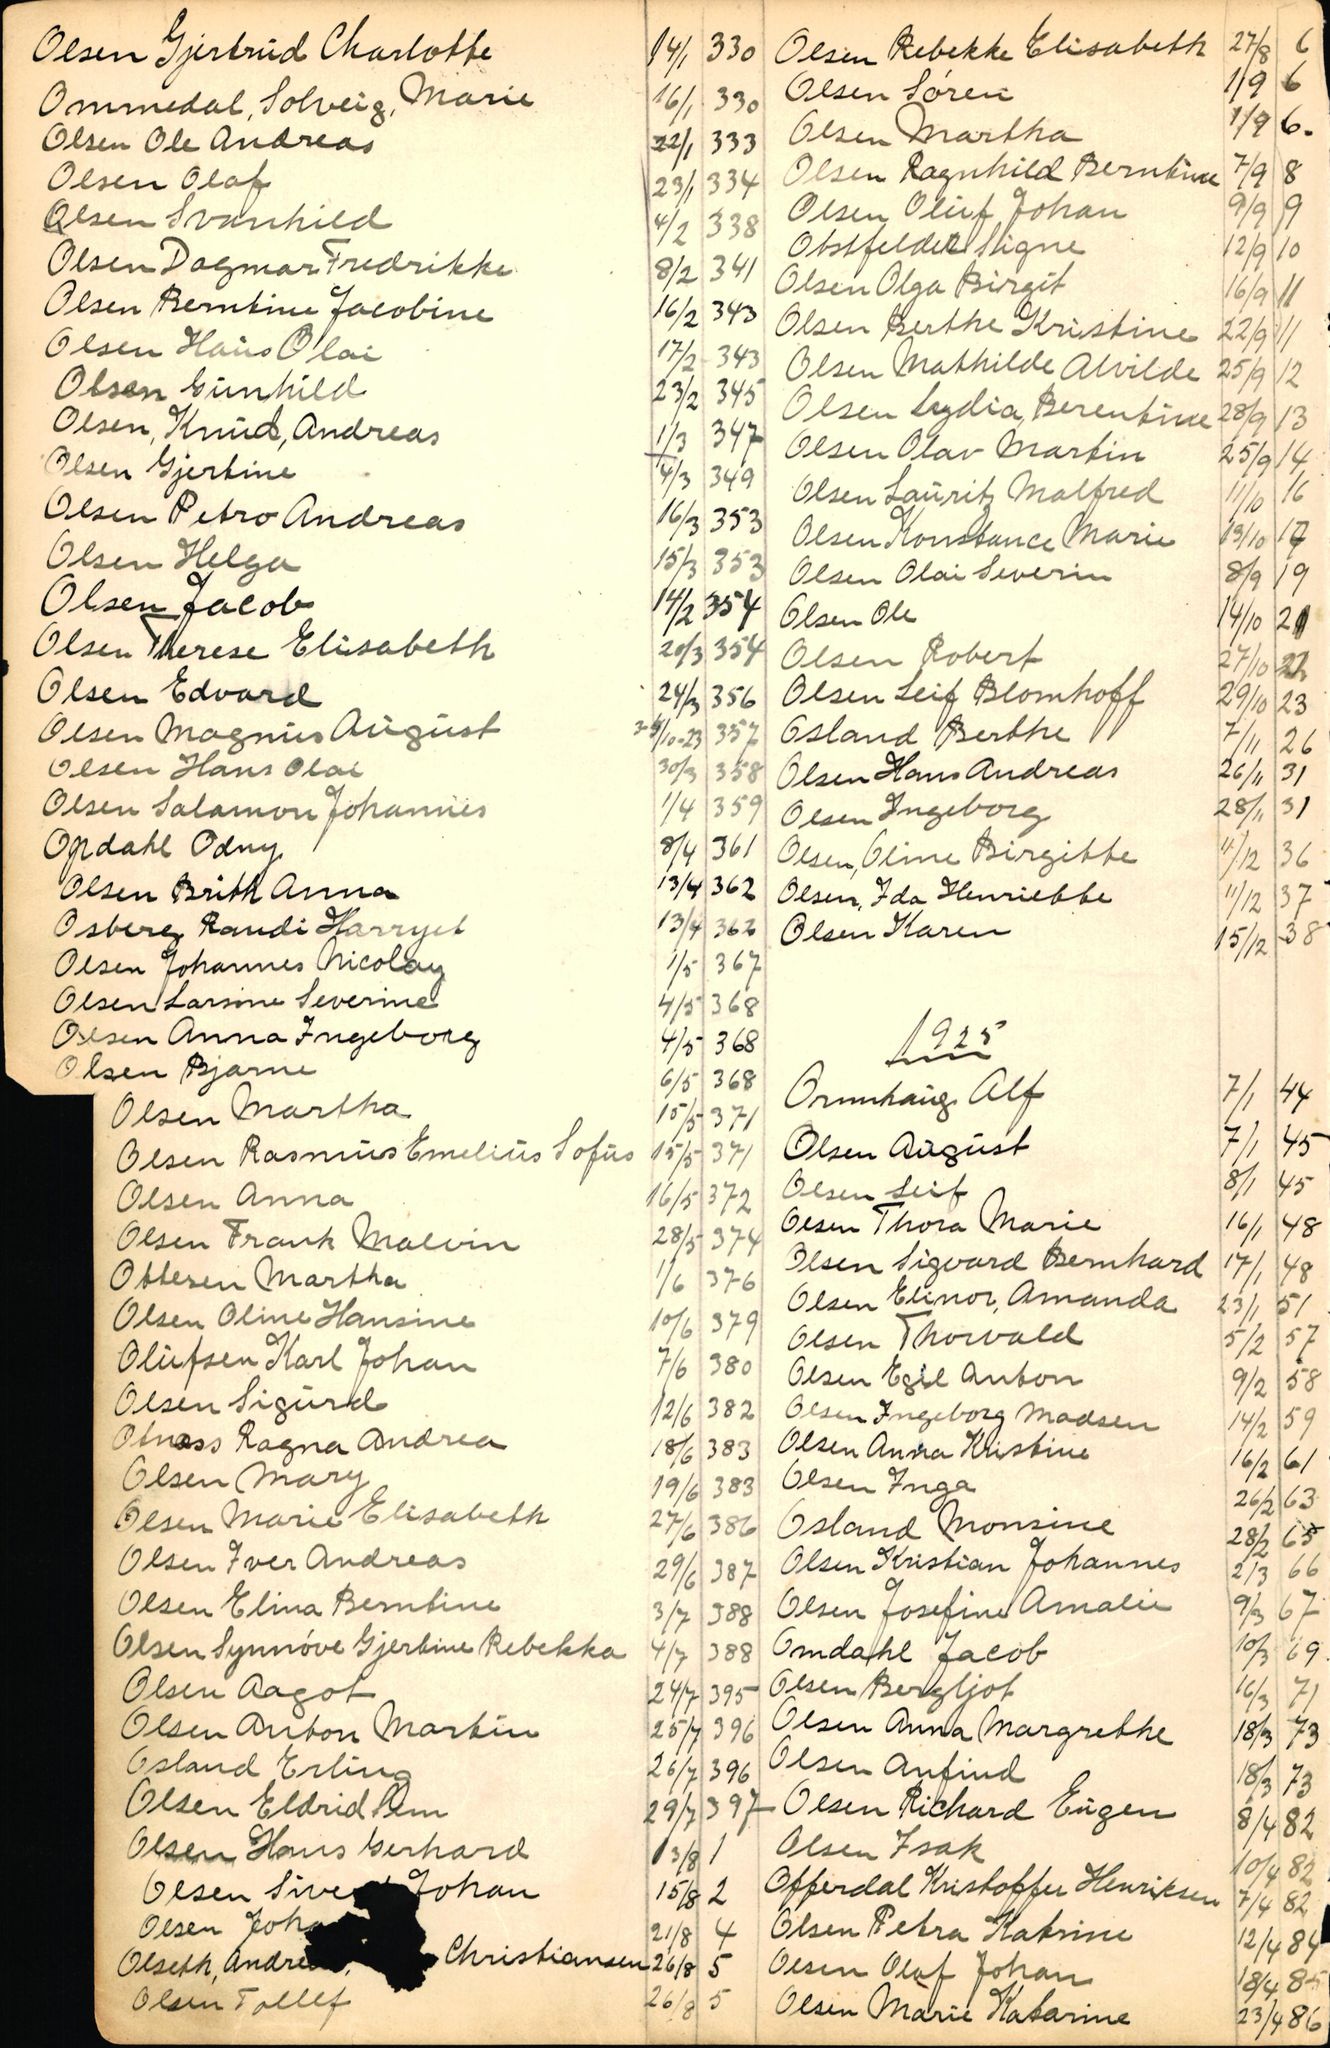 Olsen Gjertrud Charlotte 14/1 330
Ommedal, Solveig, Marie 16/1 330
Olsen Ole Andreas 22/1 333
Olsen Olaf 23/1 334
Olsen Svanhild 4/2 338
Olsen Dagmar Fredrikke 8/2 341
Olsen Berntine Jacobine 16/2 343
Olsen Hans Olai 17/2 343
Olsen Gunhild 23/2 345
Olsen, Knud, Andreas 1/3 347
Olsen Gjertine 4/3 349
Olsen Petro Andreas 16/3 353
Olsen Helga 15/3 353
Olsen Jacob 14/2 354
Olsen Therese Elisabeth 20/3 354
Olsen Edvard 24/3 356
Olsen Magnus August /10-23 357
Olsen Hans Olai 30/3 358
Olsen Salamon Johannes 1/4 359
Opdahl Odny 8/4 361
Olsen Brith Anna 13/4 362
Osberg Randi Harryet 13/4 362
Olsen Johannes Nicolay 1/5 367
Olsen Larsine Severine 4/5 368
Olsen Anna Ingeborg 4/5 368
Olsen Bjarne 6/5 368
Olsen Martha 15/5 371
Olsen Rasmus Emelius Sofus 15/5 371
Olsen Anna 16/5 372
Olsen Frank Malvin 28/5 374
Ottesen Martha 1/6 376
Olsen Oline Hansine 10/6 379
Olufsen Karl Johan 7/6 380
Olsen Sigurd 12/6 382
Otness Ragna Andrea 18/6 383
Olsen Mary 19/6 383
Olsen Marie Elisabeth 27/6 386
Olsen Iver Andreas 29/6 387
Olsen Elina Berntine 3/7 388
Olsen Synnóve Gjertine Rebekka 4/7 388
Olsen Aagot 24/7 395
Olsen Anton Martin 25/7 396
Osland Erling 26/7 396
Olsen Eldrid 29/7 397
Olsen Hans Gerhard 13/8 1
Olsen Johan 15/8 2
Olsen 21/8 4
Olseth, Christiansen 26/8 5
Olsen Tollef 26/8 5
Olsen Rebekke Elisabeth 27/8 6
Olsen Sóren 1/9 6
Olsen Martha 1/9 6.
Olsen Ragnhild Berntine 7/9 8
Olsen Oluf Johan 9/9 9
Obstfelder Signe 12/9 10
Olsen Olga Birgit 16/9 11
Olsen Berthe Kristine 22/9 11
Olsen Mathilde Alvilde 25/9 12
Olsen Lydia, Berentine 28/9 13
Olsen Olav Martin 25/9 14
Olsen Lauritz Malfred 11/10 16
Olsen Konstance Marie 13/10 17
Olsen Olai Severin 8/9 19
Olsen Ole 14/10
Olsen Robert 27/10 22
Olsen Leif Blomhoff 29/10 23
Osland Berthe 7/11 26
Olsen Hans Andreas 26/11 31
Olsen Ingeborg 28/11 31
Olsen, Oline Birgitte 4/12 36
Olsen, Ida Henriette 11/12 37
Olsen Karen 15/12 38
1925
Ormhaug Alf 7/1 44
Olsen August 7/1 45
Olsen Leif 8/1 45
Olsen Thora Marie 16/1 48
Olsen Sigvard Bernhard 17/1 48
Olsen Elinor, Amanda 23/1 51
Olsen Thorvald 5/2 57
Olsen Egil Anton 9/2 58
Olsen Ingeborg Madsen 14/2 59
Olsen Anna Kristine 16/2 61
Olsen Inga 26/2 63
Osland Monsine 28/2 65
Olsen Kristian Johannes 2/3 66
Olsen Josefine Amalie 9/3 67
Omdahl Jacob 10/3 69
Olsen Bergljot 16/3 71
Olsen Anna Margrethe 18/3 73
Olsen Anfind 18/3 73
Olsen Richard Eugen 8/4 82
Olsen Isak 10/4 82
Offerdal Kristoffer Henriksen 7/4 82
Olsen Petra Katrine 12/4 84
Olsen Olaf Johan 18/4 85
Olsen Marie Katarine 23/4 86